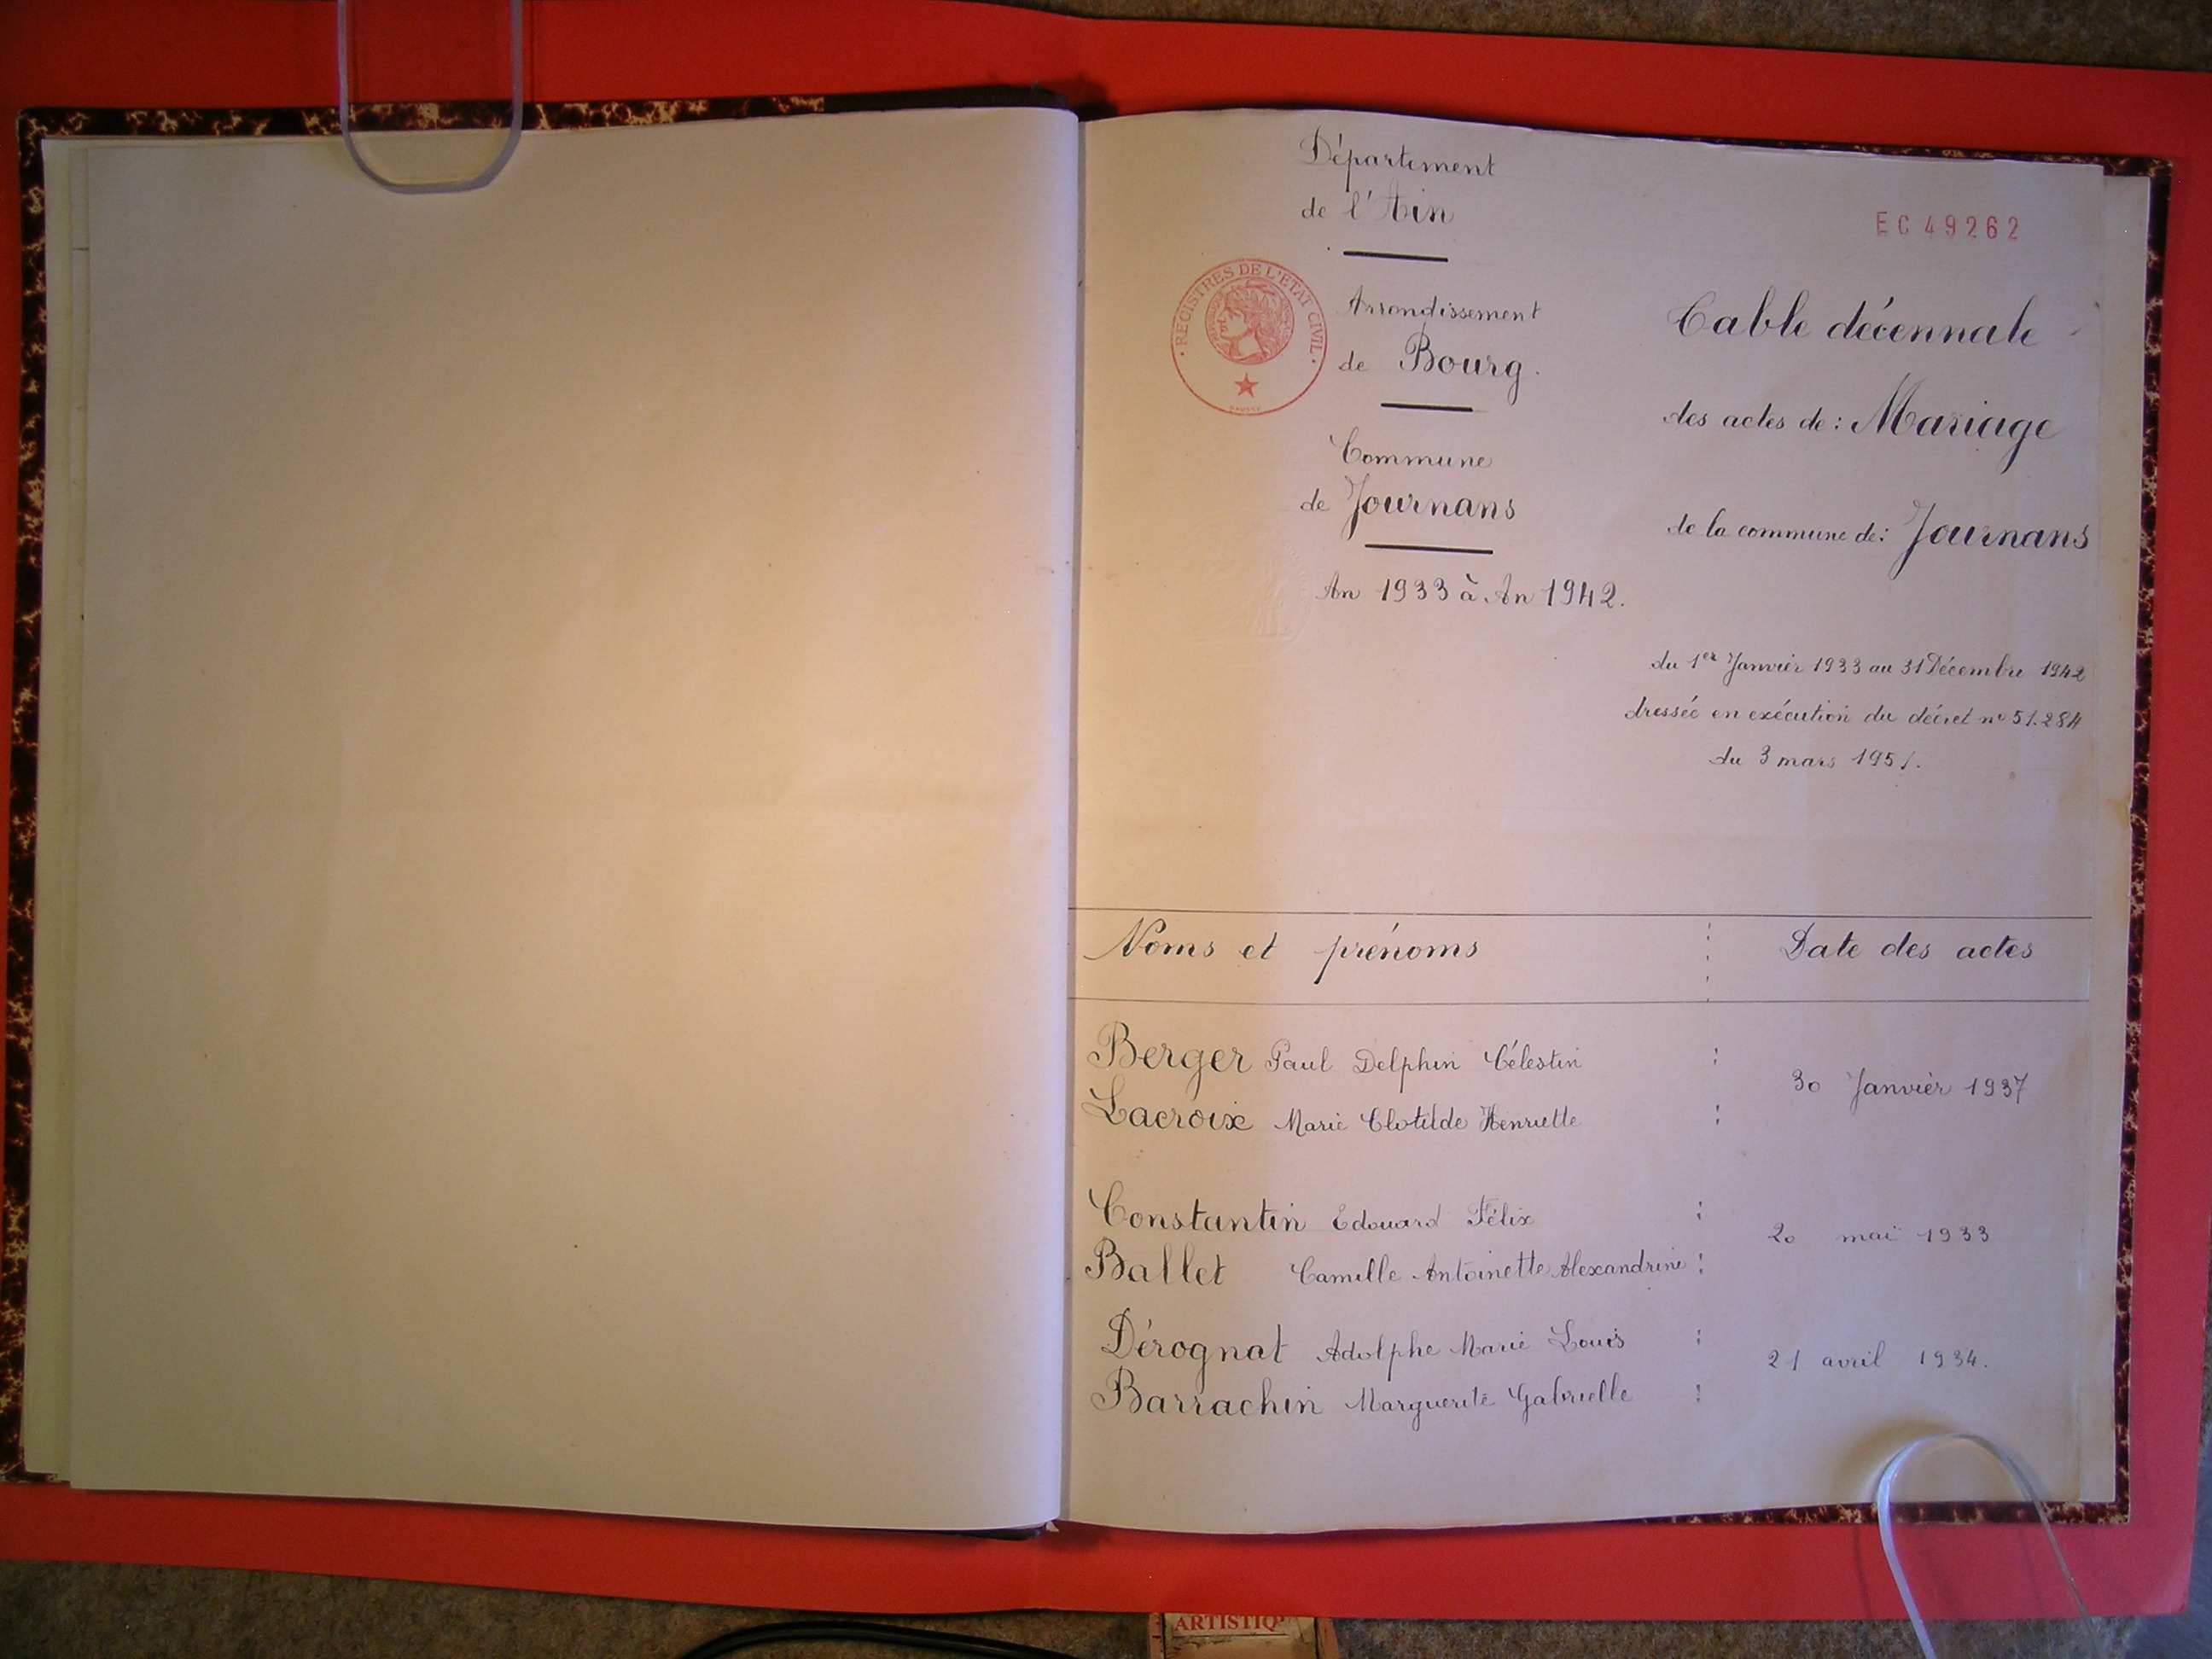 Département
de l'Ain
EC 49262
REGISTRES DE L'ETAT CIVIL
Arrondissement
de Bourg.
Commune
de Journans
An 1933 à An 1942.
Table décennale
des actes de: Mariage
de la commune de: Journans
du 1er Janvier 1933 au 31 Décembre 1942
dressée en exécution du décret no 51.284
du 3 mars 1951.
Noms et prénoms Date des actes
Berger Paul Delphin Célestin
Lacroix Marie Clotilde Henriette
30 Janvier 1937
Constantin Edouard Félix
Ballet Camille Antoinette Alexandrine
20 mai 1933
Dérognat Adolphe Marie Louis
Barrachin Marguerite Gabrielle
21 avril 1934.
ARTISTIQ